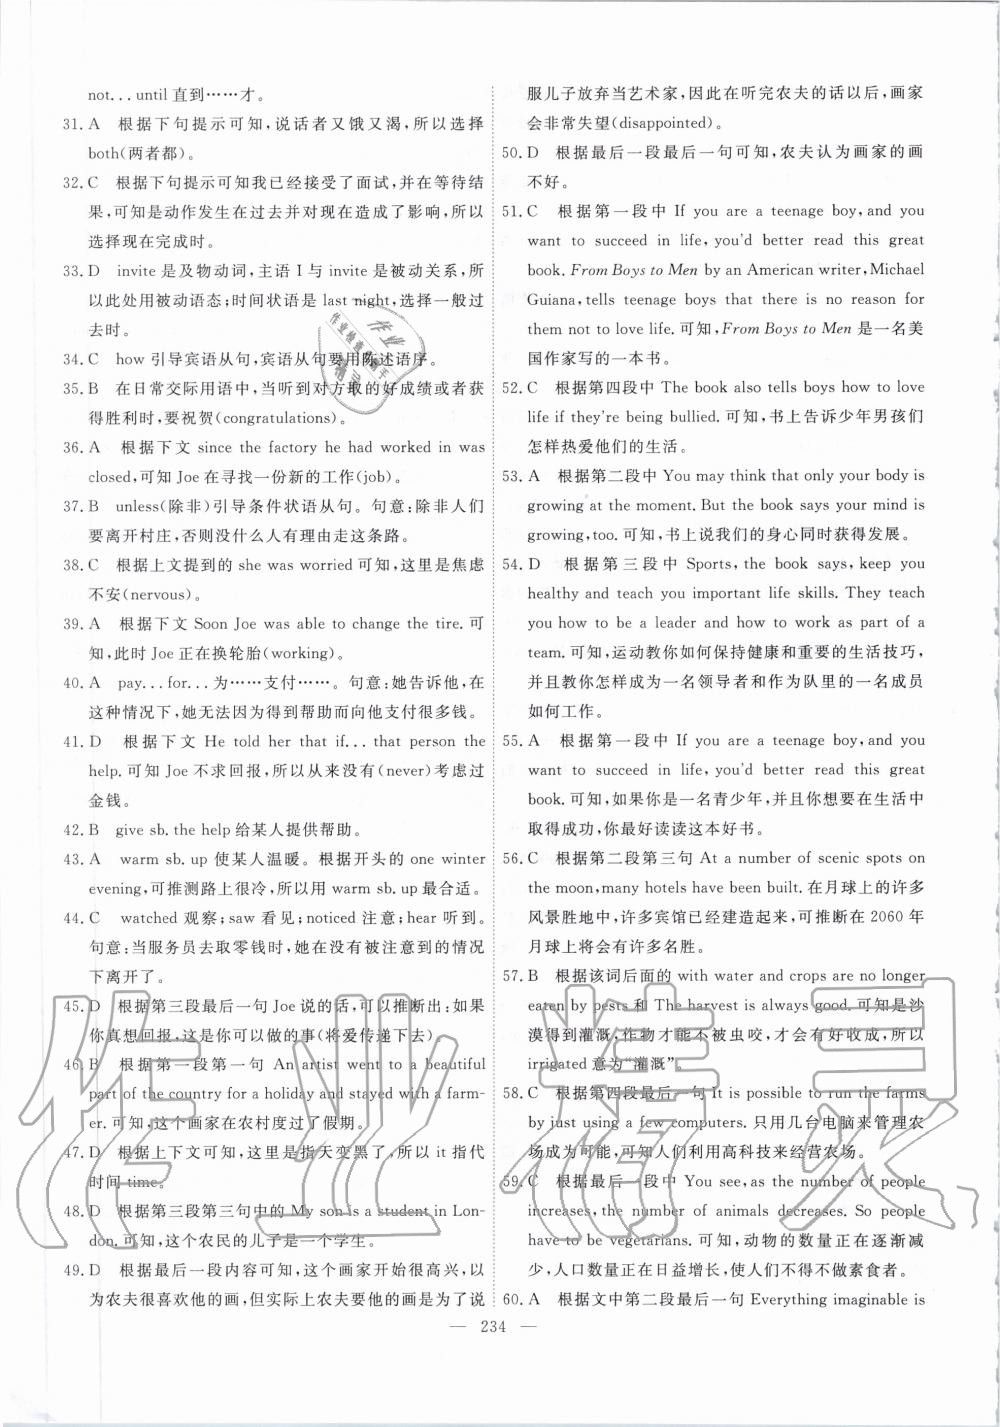 not...until 直到……才。
31. A　根据下句提示可知,说话者又饿又渴,所以选择
both(两者都)。
32. C　根据下句提示可知我已经接受了面试,并在等待结
果,可知是动作发生在过去并对现在造成了影响,所以
选择现在完成时。
33. D　invite 是及物动词,主语 I 与 invite 是被动关系,所
以此处用被动语态;时间状语是 last night,选择一般过
去时。
34. C　how 引导宾语从句,宾语从句要用陈述语序。
35. B　在日常交际用语中,当听到对方取的好成绩或者获
得胜利时,要祝贺(congratulations)。
36. A　根据下文 since the factory he had worked in was
closed,可知 Joe 在寻找一份新的工作(job)。
37. B　unless(除非)引导条件状语从句。句意:除非人们
要离开村庄,否则没什么人有理由走这条路。
38. C　根据上文提到的 she was worried 可知,这里是焦虑
不安(nervous)。
39. A　根据下文 Soon Joe was able to change the tire. 可
知,此时 Joe 正在换轮胎(working)。
40. A　pay...for... 为……支付……。句意:她告诉他,在
这种情况下,她无法因为得到帮助而向他支付很多钱。
41. D　根据下文 He told her that if... that person the
help. 可知 Joe 不求回报,所以从来没有(never)考虑过
金钱。
42. B　give sb. the help 给某人提供帮助。
43. A　warm sb. up 使某人温暖。根据开头的 one winter
evening,可推测路上很冷,所以用 warm sb. up 最合适。
44. C　watched 观察;saw 看见;noticed 注意;hear 听到。
句意:当服务员去取零钱时,她在没有被注意到的情况
下离开了。
45. D　根据第三段最后一句 Joe 说的话,可以推断出:如果
你真想回报,这是你可以做的事(将爱传递下去)
46. B　根据第一段第一句 An artist went to a beautiful
part of the country for a holiday and stayed with a farm-
er. 可知,这个画家在农村度过了假期。
47. D　根据上下文可知,这里是指天变黑了,所以 it 指代
时间 time。
48. D　根据第三段第三句中的 My son is a student in Lon-
don. 可知,这个农民的儿子是一个学生。
49. D　根据最后一段内容可知,这个画家开始很高兴,以
为农夫很喜欢他的画,但实际上农夫要他的画是为了说
服儿子放弃当艺术家,因此在听完农夫的话以后,画家
会非常失望(disappointed)。
50. D　根据最后一段最后一句可知,农夫认为画家的画
不好。
51. C　根据第一段中 If you are a teenage boy, and you
want to succeed in life, you'd better read this great
book. From Boys to Men by an American writer, Michael
Guiana, tells teenage boys that there is no reason for
them not to love life. 可知,From Boys to Men 是一名美
国作家写的一本书。
52. C　根据第四段中 The book also tells boys how to love
life if they're being bullied. 可知,书上告诉少年男孩们
怎样热爱他们的生活。
53. A　根据第二段中 You may think that only your body is
growing at the moment. But the book says your mind is
growing, too. 可知,书上说我们的身心同时获得发展。
54. D　根据第三段中 Sports, the book says, keep you
healthy and teach you important life skills. They teach
you how to be a leader and how to work as part of a
team. 可知,运动教你如何保持健康和重要的生活技巧,
并且教你怎样成为一名领导者和作为队里的一名成员
如何工作。
55. A　根据第一段中 If you are a teenage boy, and you
want to succeed in life, you'd better read this great
book. 可知,如果你是一名青少年,并且你想要在生活中
取得成功,你最好读读这本好书。
56. C　根据第二段第三句 At a number of scenic spots on
the moon, many hotels have been built. 在月球上的许多
风景胜地中,许多宾馆已经建造起来,可推断在 2060 年
月球上将会有许多名胜。
57. B　根据该词后面的 with water and crops are no longer
eaten by pests 和 The harvest is always good. 可知是沙
漠得到灌溉,作物才能不被虫咬,才会有好收成,所以
irrigated 意为“灌溉”。
58. C　根据第四段最后一句 It is possible to run the farms
by just using a few computers. 只用几台电脑来管理农
场成为可能,可知人们利用高科技来经营农场。
59. C　根据最后一段中 You see, as the number of people
increases, the number of animals decreases. So people
have to be vegetarians. 可知,动物的数量正在逐渐减
少,人口数量正在日益增长,使人们不得不做素食者。
60. A　根据文中第二段最后一句 Everything imaginable is
— 234 —
作业精灵